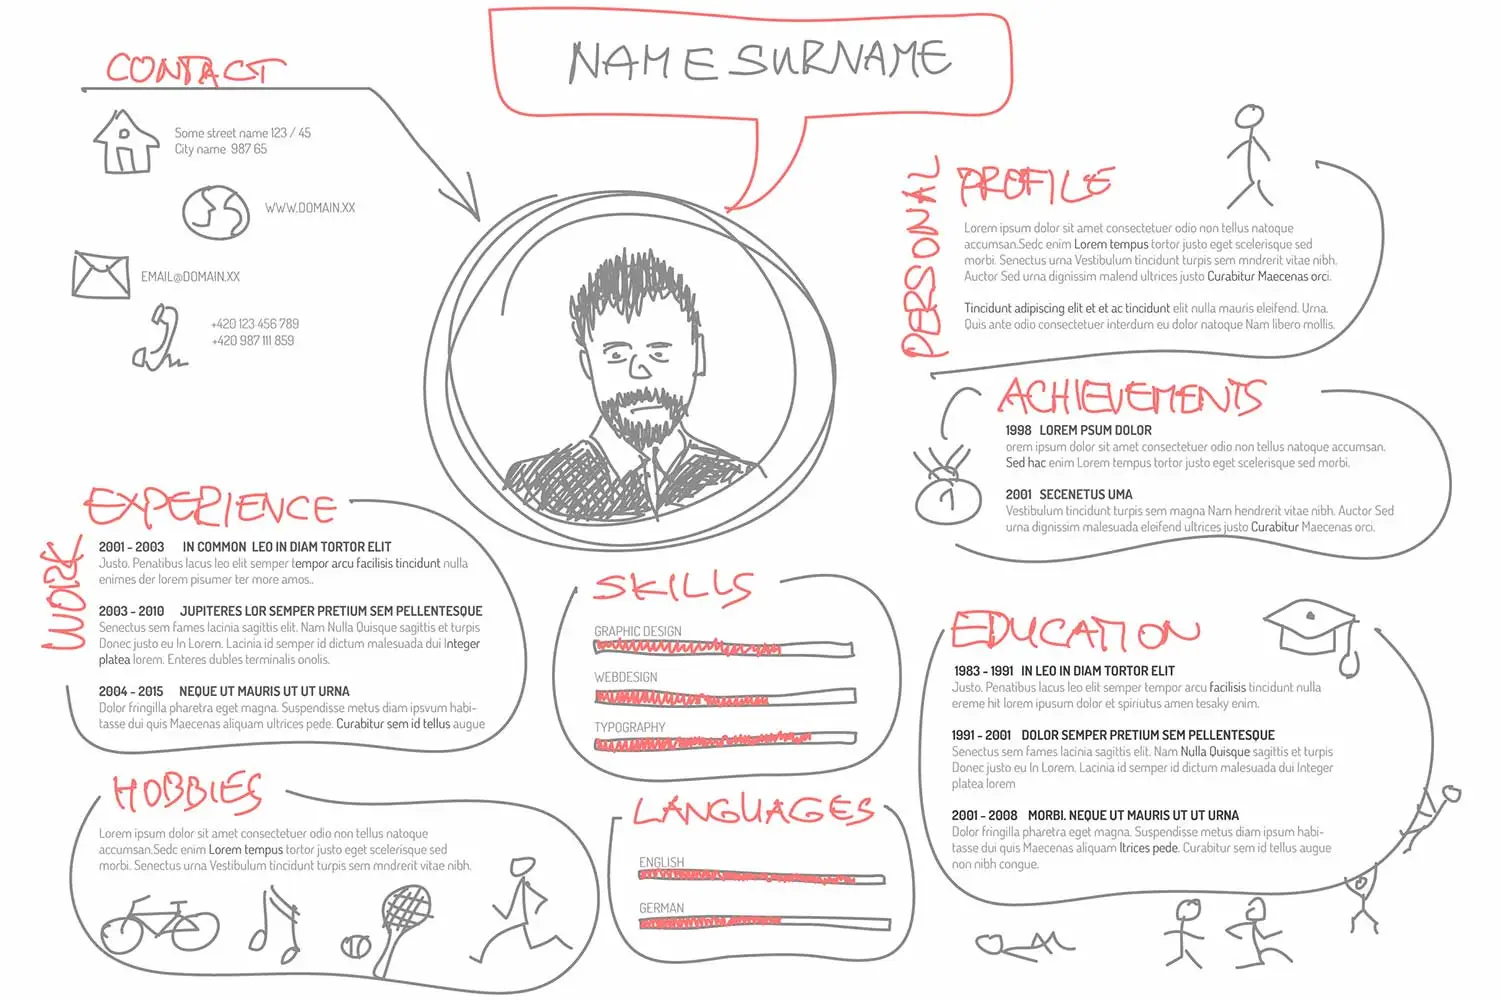 NAME SURNAME
CONTACT
Some street name 123 / 45
City name 987 65
WWW.DOMAIN.XX
EMAIL@DOMAIN.XX
+420 123 456 789
+420 987 111 859
PERSONAL
PROFILE
Lorem ipsum dolor sit amet consectetuer odio non tellus natoque
accumsan.Sedc enim Lorem tempus tortor justo eget scelerisque sed
morbi. Senectus urna Vestibulum tincidunt turpis sem mndrerit vitae nibh.
Auctor Sed urna dignissim malend ultrices justo Curabitur Maecenas orci.
Tincidunt adipiscing elit et et ac tincidunt elit nulla mauris eleifend. Urna.
Quis ante odio consectetuer interdum eu dolor natoque Nam libero mollis.
ACHIEVEMENTS
1998 LOREM PSUM DOLOR
orem ipsum dolor sit amet consectetuer odio non tellus natoque accumsan.
Sed hac enim Lorem tempus tortor justo eget scelerisque sed morbi.
2001 SECENETUS UMA
Vestibulum tincidunt turpis sem magna Nam hendrerit vitae nibh. Auctor Sed
urna dignissim malesuada eleifend ultrices justo Curabitur Maecenas orci.
1
WORK
EXPERIENCE
2001 - 2003 IN COMMON LEO IN DIAM TORTOR ELIT
Justo. Penatibus lacus leo elit semper tempor arcu facilisis tincidunt nulla
enimes der lorem pisumer ter more amos..
2003 - 2010 JUPITERES LOR SEMPER PRETIUM SEM PELLENTESQUE
Senectus sem fames lacinia sagittis elit. Nam Nulla Quisque sagittis et turpis
Donec justo eu In Lorem. Lacinia id semper id dictum malesuada dui Integer
platea lorem. Enteres dubles terminalis onolis.
2004 - 2015 NEQUE UT MAURIS UT UT URNA
Dolor fringilla pharetra eget magna. Suspendisse metus diam ipsvum habi-
tasse dui quis Maecenas aliquam ultrices pede. Curabitur sem id tellus augue
SKILLS
GRAPHIC DESIGN
WEBDESIGN
TYPOGRAPHY
EDUCATION
1983 - 1991 IN LEO IN DIAM TORTOR ELIT
Justo. Penatibus lacus leo elit semper tempor arcu facilisis tincidunt nulla
ereme hit lorem ipusum dolor et spiriutus amen tesaky enim.
1991 - 2001 DOLOR SEMPER PRETIUM SEM PELLENTESQUE
Senectus sem fames lacinia sagittis elit. Nam Nulla Quisque sagittis et turpis
Donec justo eu In Lorem. Lacinia id semper id dictum malesuada dui Integer
platea lorem
2001 - 2008 MORBI. NEQUE UT MAURIS UT UT URNA
Dolor fringilla pharetra eget magna. Suspendisse metus diam ipsum habi-
tasse dui quis Maecenas aliquam ltrices pede. Curabitur sem id tellus augue
non nibh congue.
HOBBIES
Lorem ipsum dolor sit amet consectetuer odio non tellus natoque
accumsan.Sedc enim Lorem tempus tortor justo eget scelerisque sed
morbi. Senectus urna Vestibulum tincidunt turpis sem mndrerit vitae nibh.
LANGUAGES
ENGLISH
GERMAN